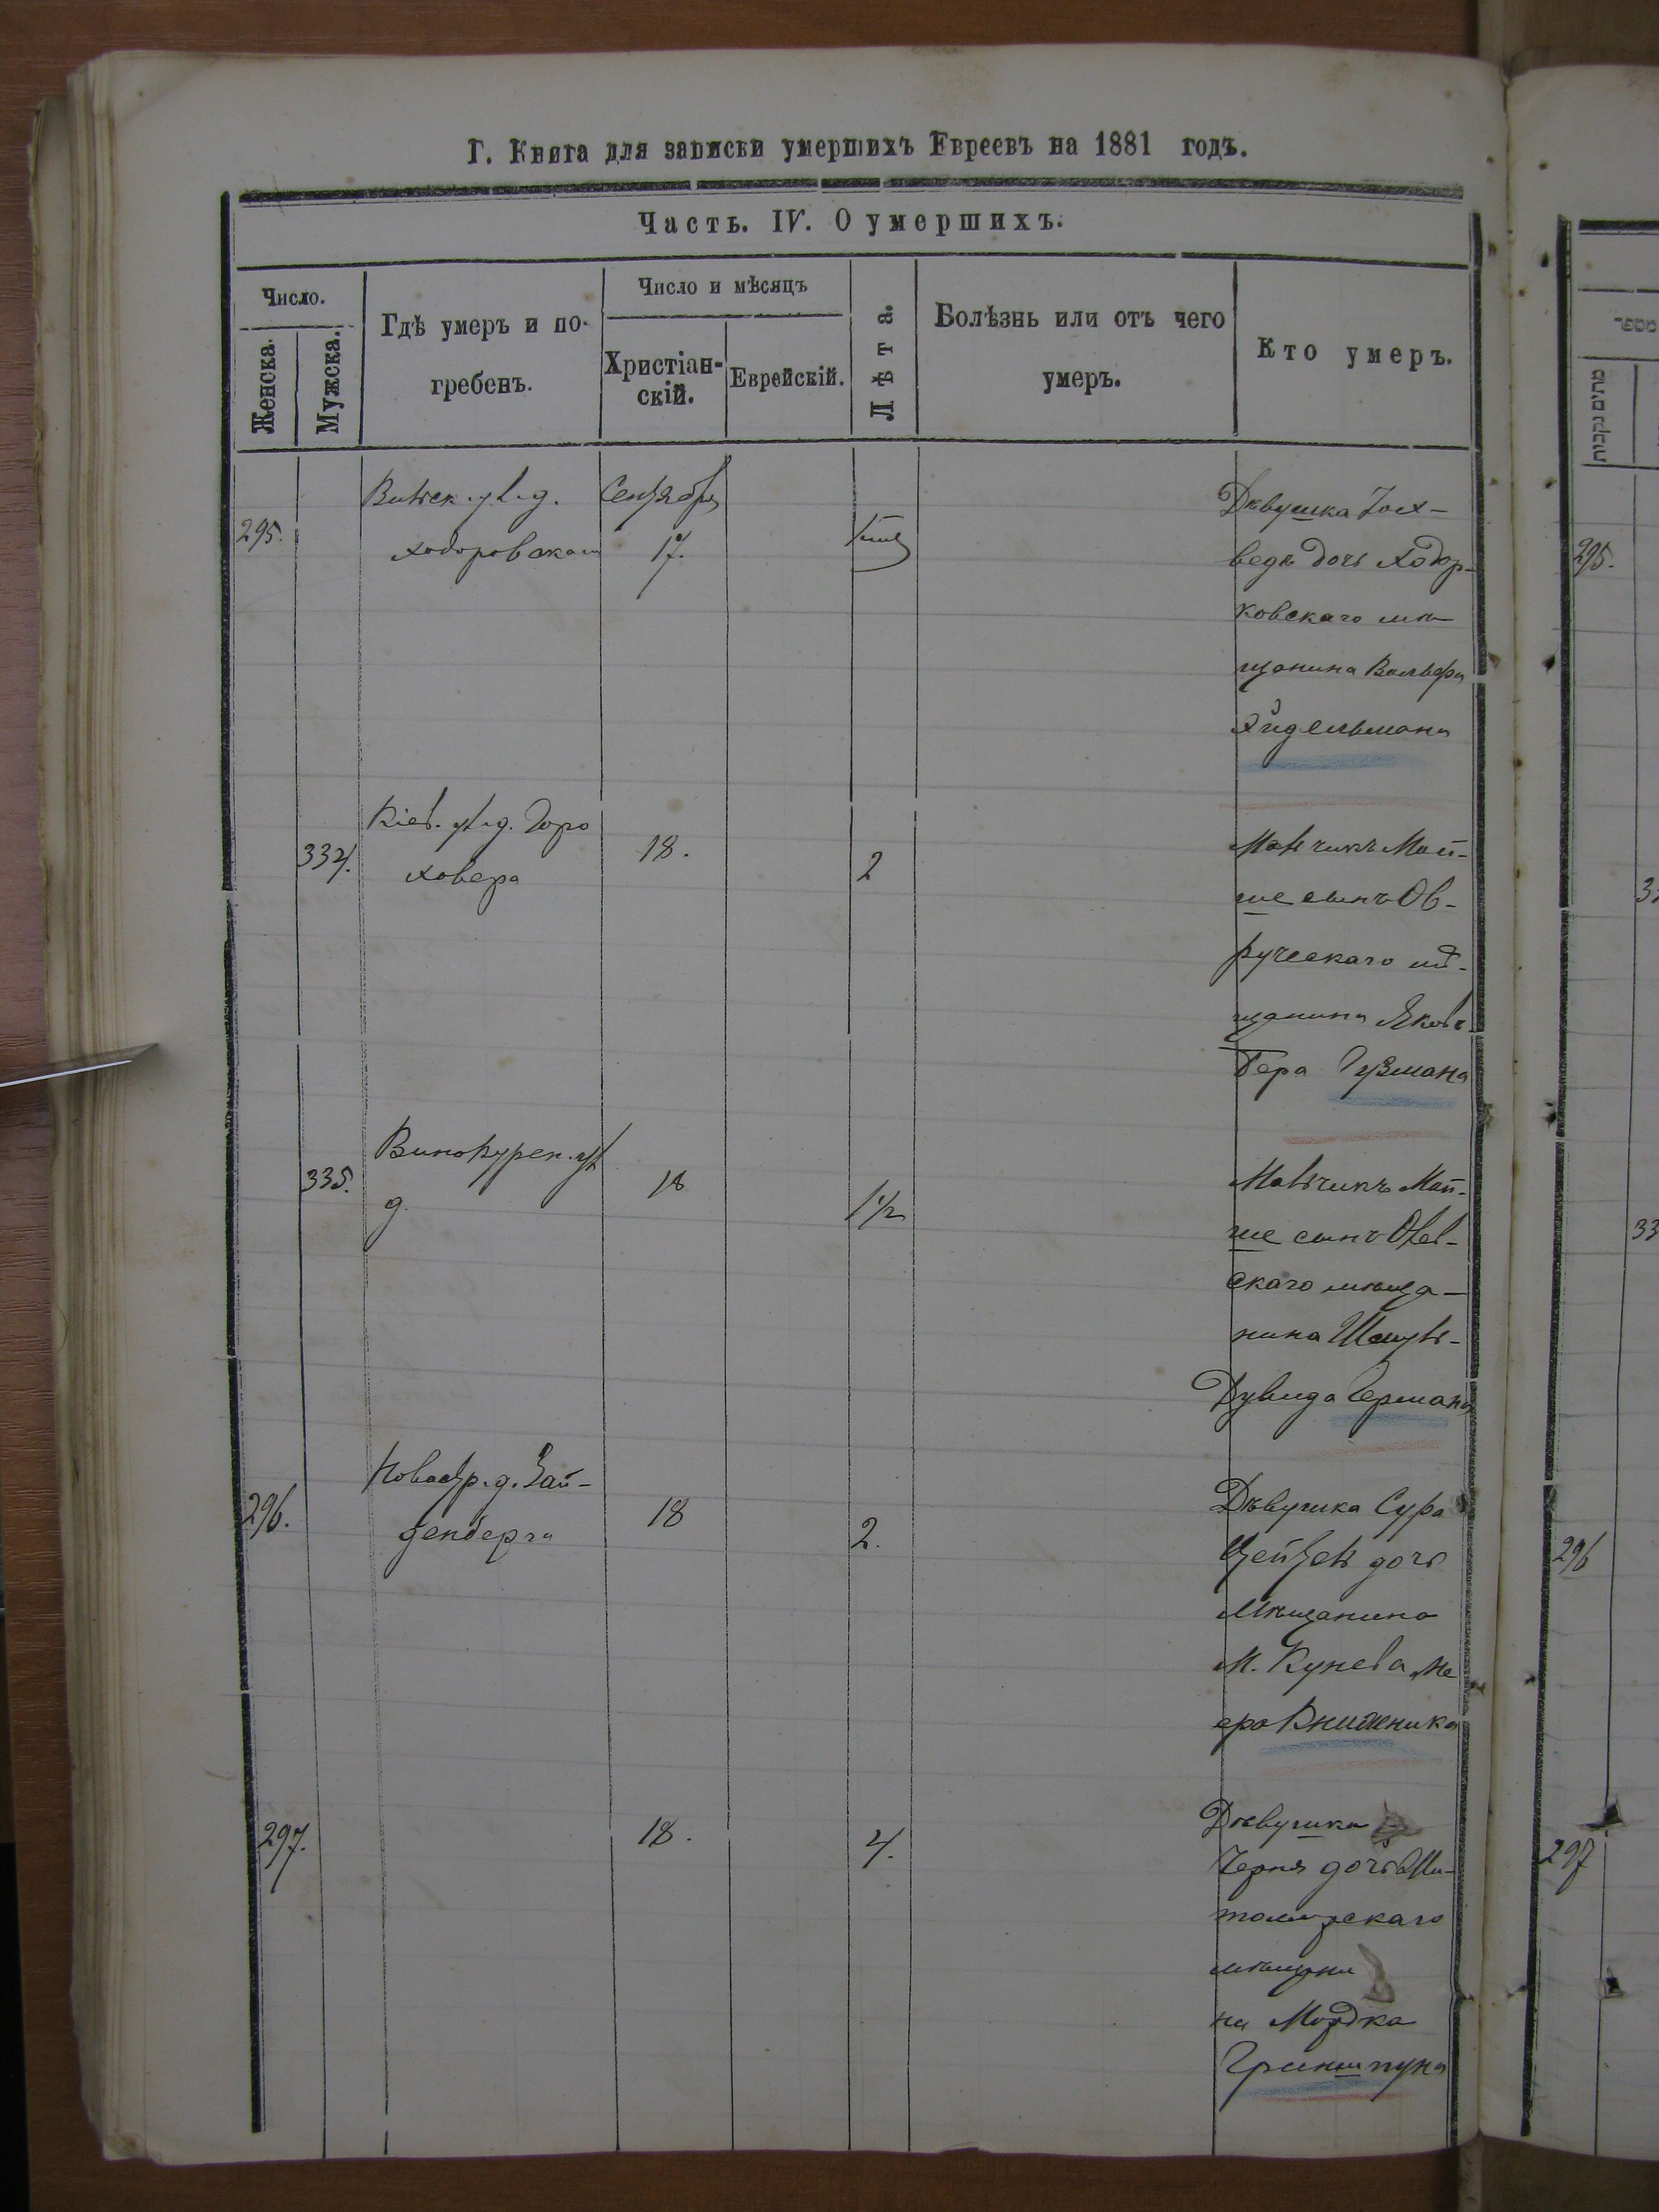 Г. Книга для записки умершихъ Евреевъ на 1881 годъ.
Часть. IV. О умершихъ.
Число.
Женска.
Мужска.
Гдѣ умеръ и по-
гребенъ.
Число и мѣсяцъ
Христіан-
скій.
Еврейскій.
Лѣта.
Болѣзнь или отъ чего
умеръ.
Кто умеръ.
295.
Вильск. ул. д.
Ходоровском
Сентября
17.
Дѣвушка Іох-
ведъ дочь Ходор-
ковскаго мѣ-
щанина Вольфа
Эйдельмана
334.
Кіев. ул. д. Горо
ховера
18.
2
Мальчикъ Мой-
ше сынъ Ов-
ручскаго мѣ-
щанина Яковъ
Бера Гузмана
335.
Винокурен. ул.
д.
18
1 1/2
Мальчикъ Мой-
ше сынъ Олев-
скаго мѣща-
нина Шмуль-
Дувида Германа
296.
Новостр. д. Зай-
денберга
18
2.
Дѣвушка Сура
Цейтель дочь
Мѣщанина
М. Кунева Ме
ера Книжника
297.
18.
4.
Дѣвушка
Черня дочь Жи-
томирскаго
мѣщани
на Мордка
Гриншпуна
מספר
295.
296
297